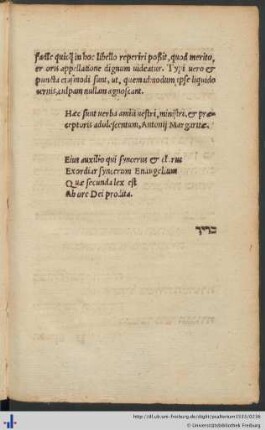 facile quicq̃ in hoc libello reperiri possit, quod merito,
er oris appellatione dignum uideatur. Typi uero &
puncta eiusmodi sunt, ut, quemadmodum ipse liquido
cernis, culpam nullam agnoscant.
Hæc sunt uerba amici uestri, ministri, & præ
ceptoris adolescentum, Antonij Margaritæ.
Eius auxilio qui syncerus & cl rus
Exordiar syncerum Euangelium
Quæ secunda lex est
Ab ore Dei prolita.
בריך
http://dl.ub.uni-freiburg.de/diglit/psalterium1533/0236
© Universitätsbibliothek Freiburg